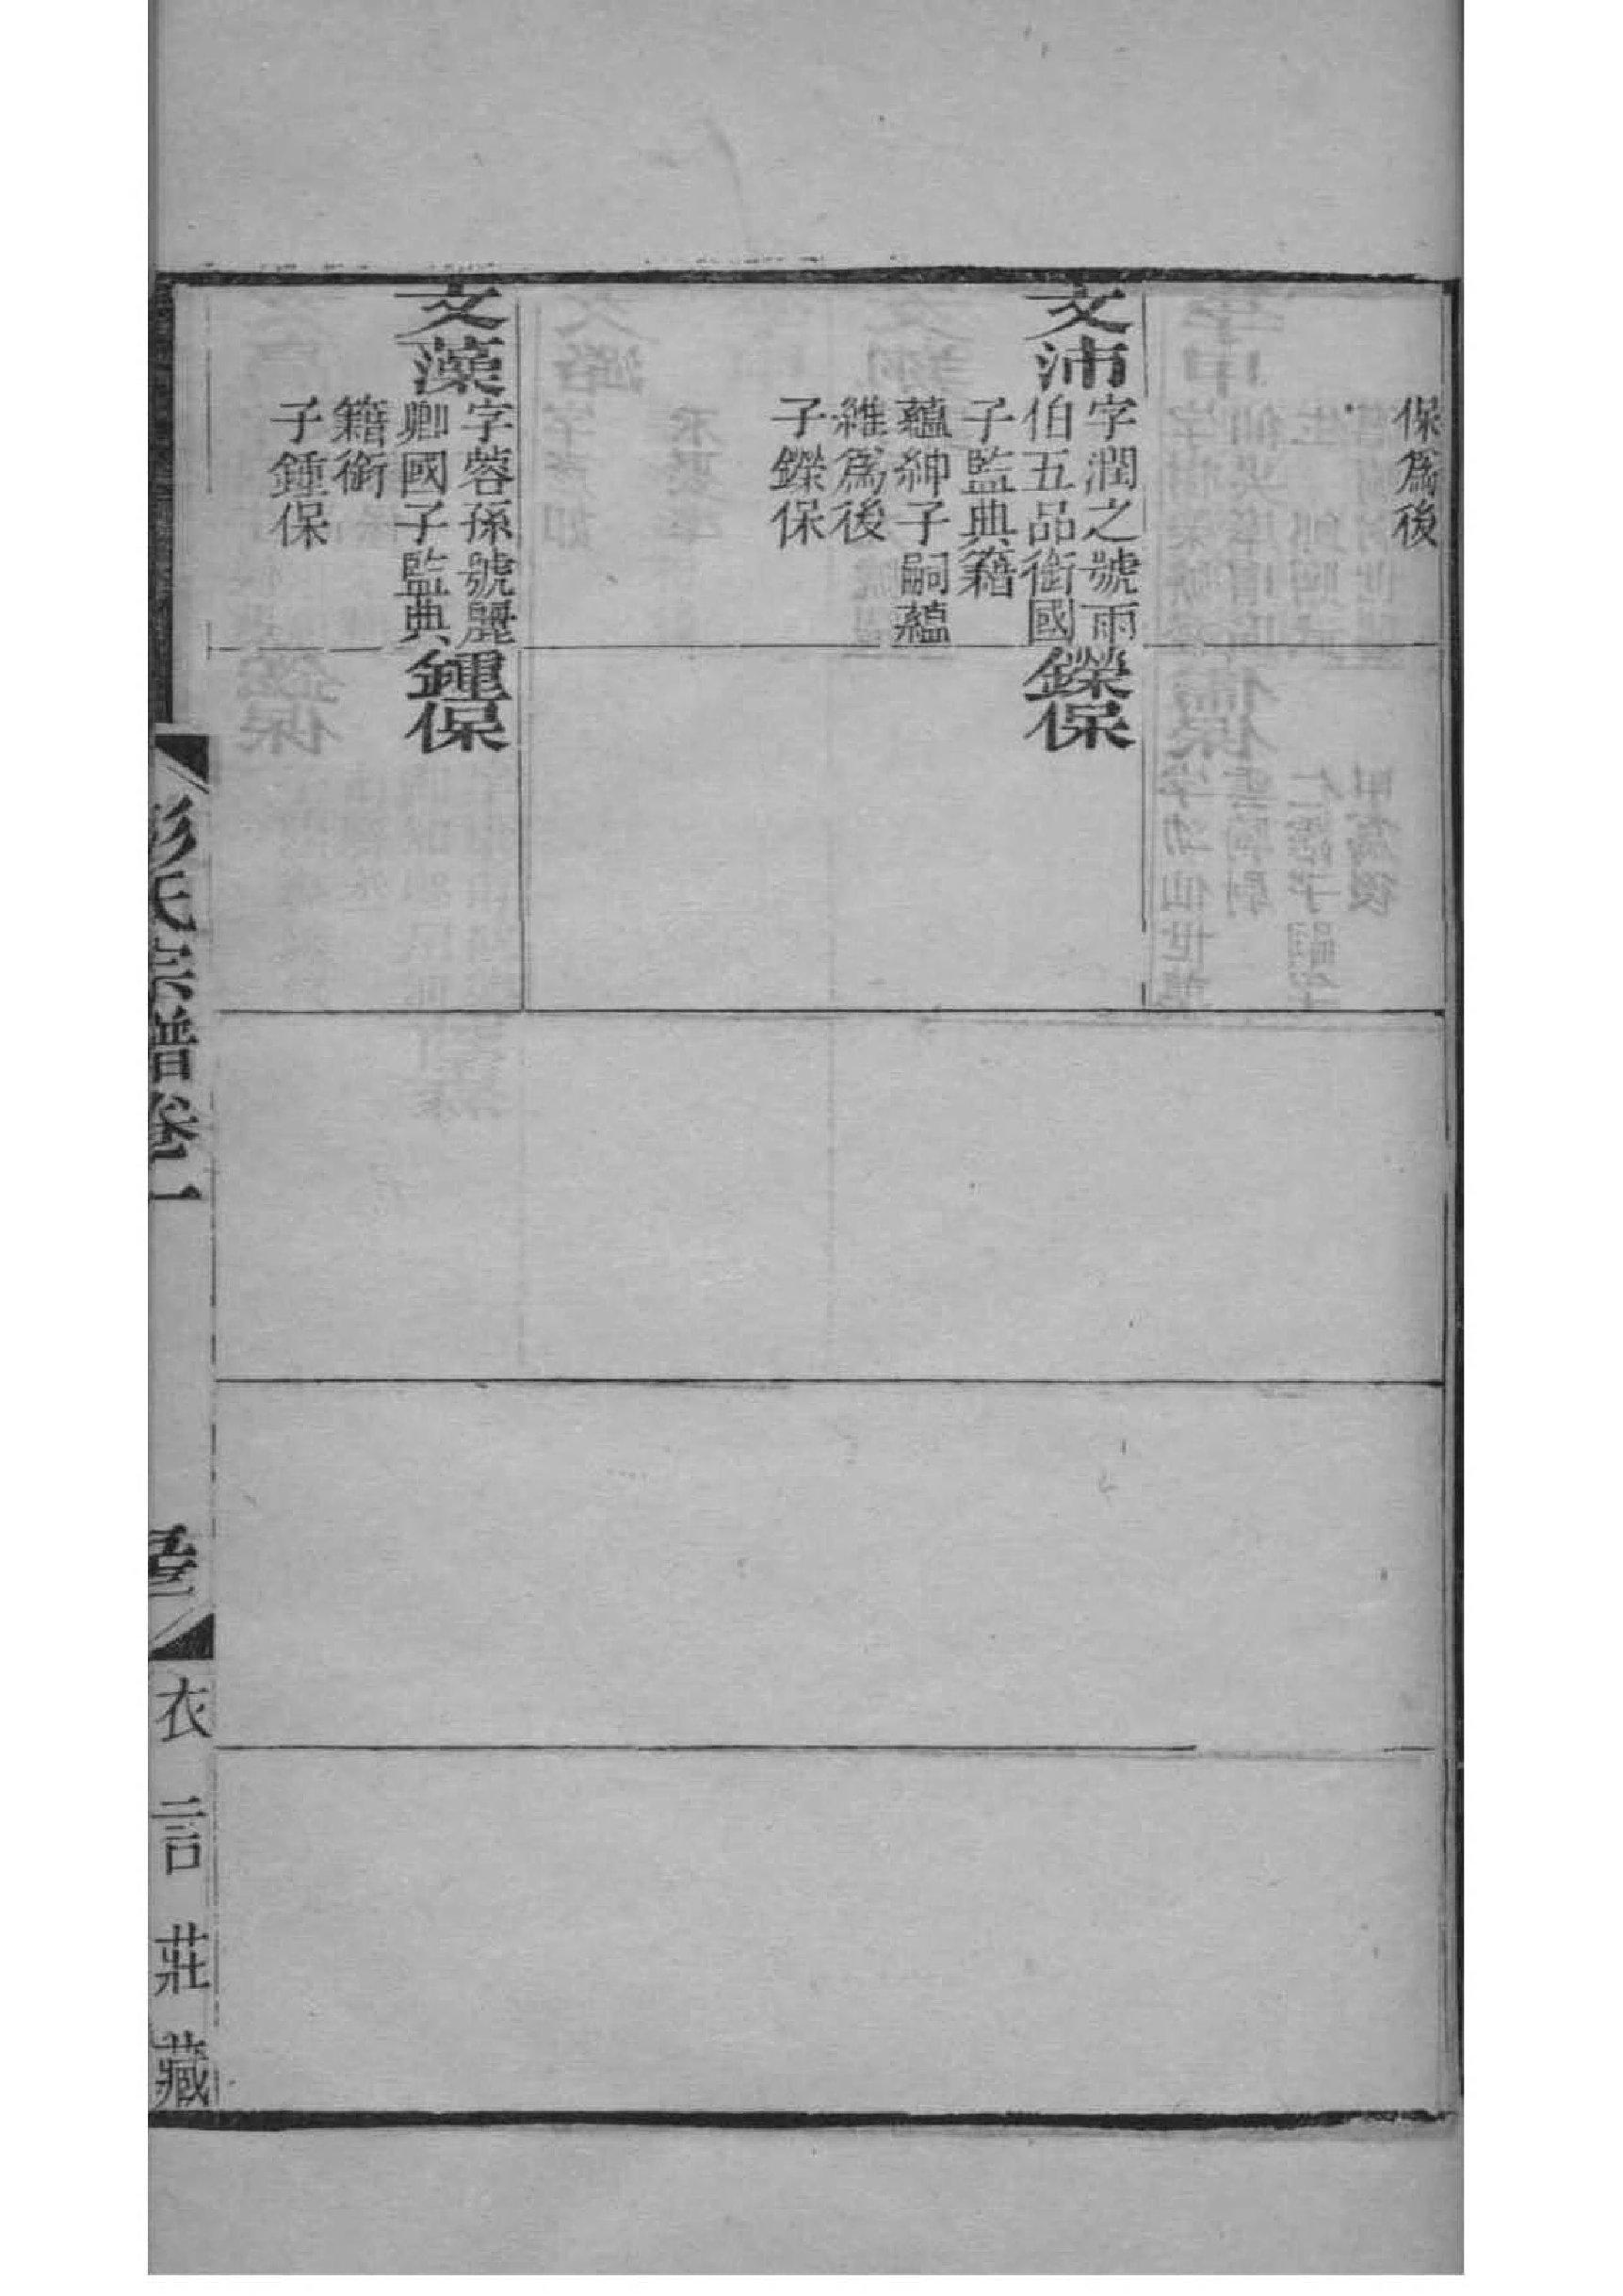 保爲後
文沛
字潤之號雨
伯五品銜國
子監典籍
蘊紳子嗣蘊
維爲後
子鑅保
鑅保
文藻
字蓉孫號麗
卿國子監典
籍銜
子鍾保
鍾保
彭氏宗譜卷一
衣言莊藏